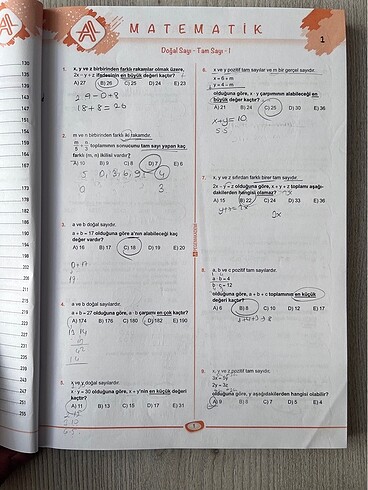 MATEMATİK
Doğal Sayı - Tam Sayı - I
1
1. x, y ve z birbirinden farklı rakamlar olmak üzere,
2x – y + z ifadesinin en büyük değeri kaçtır?
A) 27 B) 26 C) 25 D) 24 E) 23
2.9-0+8
18+8=26
2. m ve n birbirinden farklı iki rakamdır.
m/5 + n/3 toplamının sonucunu tam sayı yapan kaç
farklı (m, n) ikilisi vardır?
A) 10 B) 9 C) 8 D) 7 E) 6
3. a ve b doğal sayıdır.
a + b = 17 olduğuna göre a'nın alabileceği kaç
değer vardır?
A) 16 B) 17 C) 18 D) 19 E) 20
0+17
17
4. a ve b doğal sayılardır.
a + b = 27 olduğuna göre, a · b çarpımı en çok kaçtır?
A) 174 B) 176 C) 180 D) 182 E) 190
5. x ve y doğal sayılardır.
x · y = 30 olduğuna göre, x – y'nin en küçük değeri
kaçtır?
A) 11 B) 13 C) 15 D) 17 E) 31
6. x ve y pozitif tam sayılar ve m bir gerçel sayıdır.
x = 6 + m
y = 4 – m
olduğuna göre, x · y çarpımının alabileceği en
büyük değeri kaçtır?
A) 21 B) 24 C) 25 D) 30 E) 36
x+y=10
5 5
7. x, y ve z sıfırdan farklı birer tam sayıdır.
2x – y = z olduğuna göre, x + y + z toplamı aşağı-
dakilerden hangisi olamaz?
A) 15 B) 22 C) 24 D) 33 E) 36
3x
8. a, b ve c pozitif tam sayılardır.
a · b = 4
b · c = 12
olduğuna göre, a + b + c toplamının en küçük
değeri kaçtır?
A) 6 B) 8 C) 10 D) 12 E) 17
9. x, y ve z pozitif tam sayıdır.
3x = 5y
2y = 3z
olduğuna göre, y aşağıdakilerden hangisi olabilir?
A) 9 B) 8 C) 7 D) 5 E) 4
1
130
135
153
163
166
178
183
190
193
196
200
205
207
211
213
216
221
225
229
237
243
247
251
255